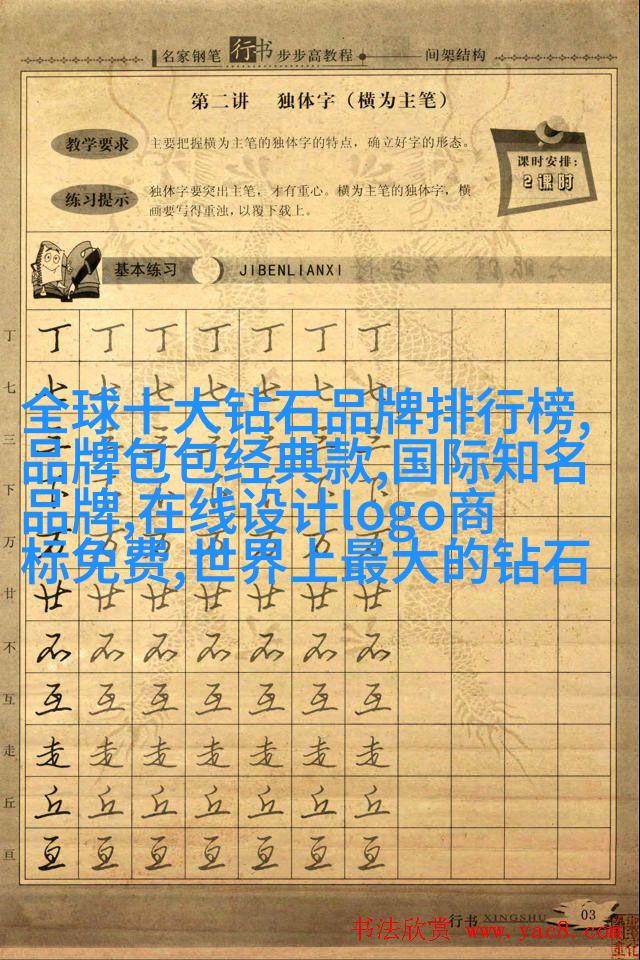 名家钢笔 行书 步步高教程 间架结构
第二讲 独体字（横为主笔）
教学要求 主要把握横为主笔的独体字的特点，确立好字的形态。
课时安排：
2课时
练习提示 独体字要突出主笔，才有重心。横为主笔的独体字，横
画要写得重浊，以覆下载上。
基本练习 JIBENLIANXI
丁 丁 丁 丁 丁 丁 丁 丁
七 七 七 七 七 七 七 七
全球十大钻石品牌排行榜,
三
品牌包包经典款,国际知名
下
品牌,在线设计logo商
万
标免费,世界上最大的钻石
廿 廿 廿 廿 廿 廿 廿 廿
不 不 不 不 不 不 不 不
互 互 互 互 互 互 互 互
走 走 走 走 走 走 走 走
丘 丘 丘 丘 丘 丘 丘 丘
亘 亘 亘 亘 亘 亘 亘 亘
行书 XINGSHU 03
书法欣赏 www.yac8.com